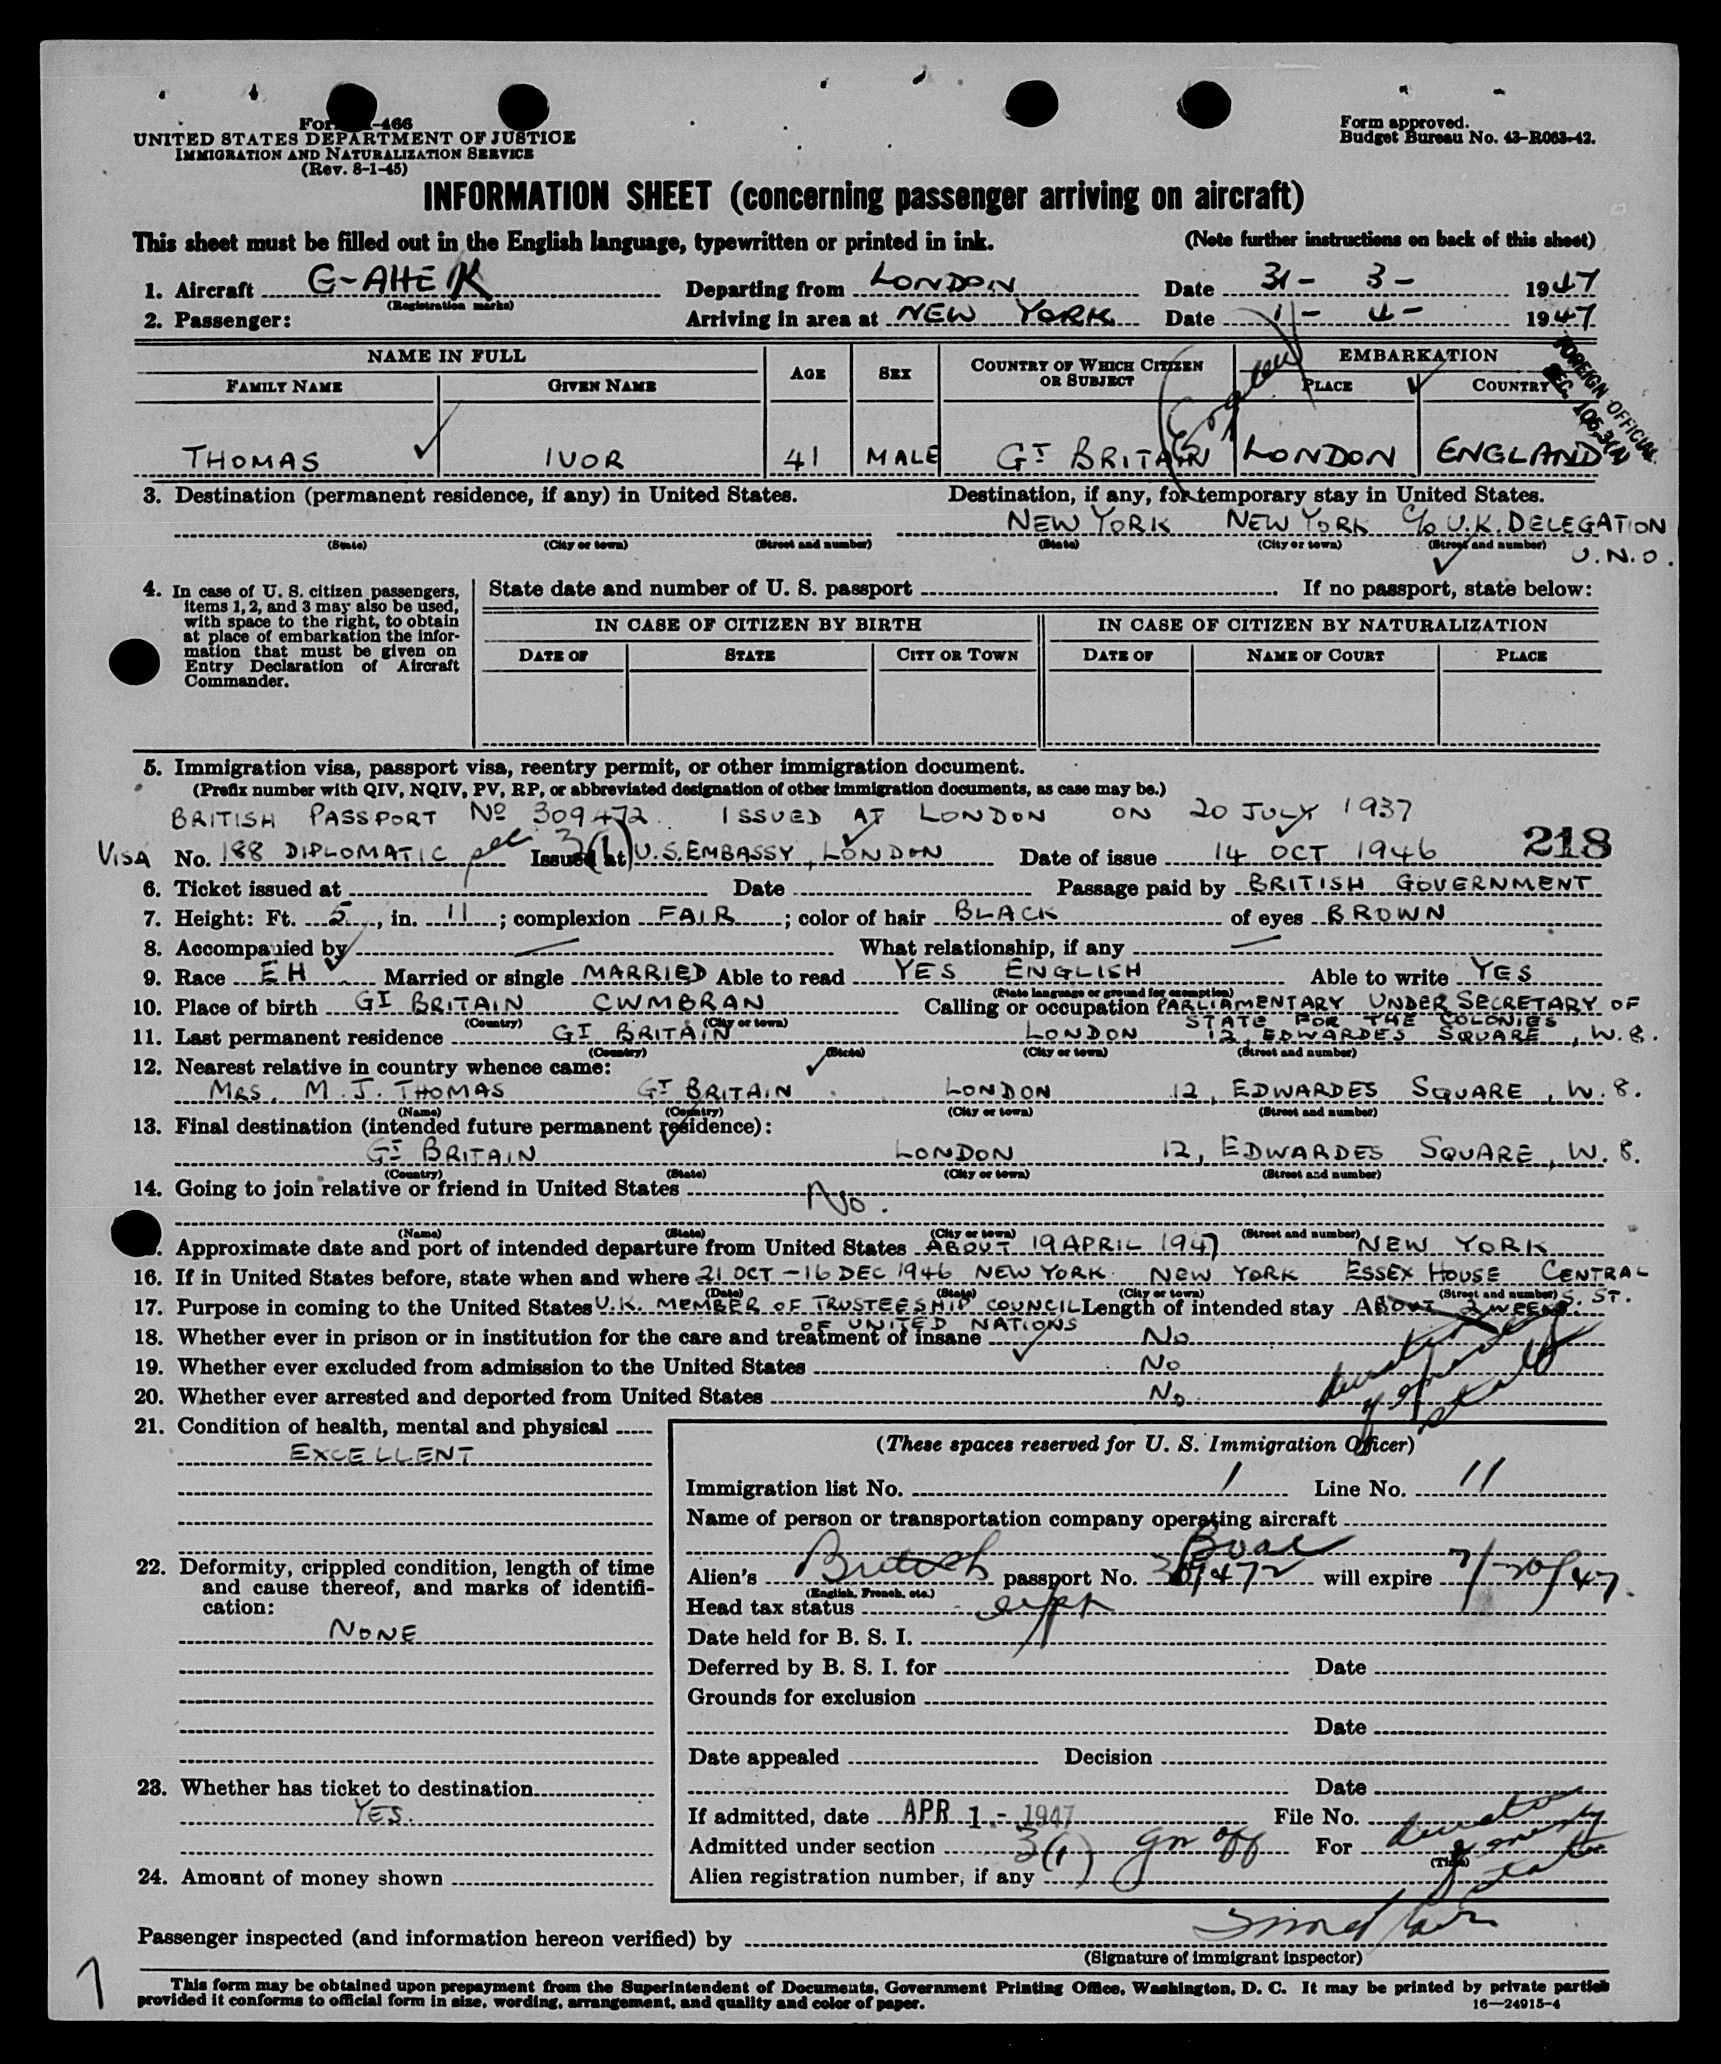 Form -466
UNITED STATES DEPARTMENT OF JUSTICE
IMMIGRATION AND NATURALIZATION SERVICE
(Rev. 8-1-45)
Form approved.
Budget Bureau No. 43-R063-42.
INFORMATION SHEET (concerning passenger arriving on aircraft)
This sheet must be filled out in the English language, typewritten or printed in ink. (Note further instructions on back of this sheet)
1. Aircraft G-AHEK Departing from LONDON Date 31- 3- 1947
(Registration marks)
2. Passenger: Arriving in area at NEW YORK Date 1- 4- 1947
NAME IN FULL AGE SEX COUNTRY OF WHICH CITIZEN OR SUBJECT EMBARKATION
FAMILY NAME GIVEN NAME PLACE COUNTRY
FOREIGN OFFICIAL
SEC.
THOMAS IVOR 41 MALE GT BRITAIN LONDON ENGLAND
3. Destination (permanent residence, if any) in United States. Destination, if any, for temporary stay in United States.
NEW YORK NEW YORK C/o U.K. DELEGATION
(State) (City or town) (Street and number) (State) (City or town) (Street and number) U.N.O.
4. In case of U. S. citizen passengers, items 1, 2, and 3 may also be used, with space to the right, to obtain at place of embarkation the information that must be given on Entry Declaration of Aircraft Commander.
State date and number of U. S. passport If no passport, state below:
IN CASE OF CITIZEN BY BIRTH IN CASE OF CITIZEN BY NATURALIZATION
DATE OF STATE CITY OR TOWN DATE OF NAME OF COURT PLACE
5. Immigration visa, passport visa, reentry permit, or other immigration document.
(Prefix number with QIV, NQIV, PV, RP, or abbreviated designation of other immigration documents, as case may be.)
BRITISH PASSPORT No 309472 ISSUED AT LONDON ON 20 JULY 1937
218
VISA No. 188 DIPLOMATIC sec 3(1) Issued at U.S. EMBASSY, LONDON Date of issue 14 OCT 1946
6. Ticket issued at Date Passage paid by BRITISH GOVERNMENT
7. Height: Ft. 5, in. 11; complexion FAIR; color of hair BLACK of eyes BROWN
8. Accompanied by — What relationship, if any —
9. Race EH Married or single MARRIED Able to read YES ENGLISH Able to write YES
(State language or ground for exemption)
10. Place of birth GT BRITAIN CWMBRAN Calling or occupation PARLIAMENTARY UNDER SECRETARY OF
(Country) (City or town) STATE FOR THE COLONIES
11. Last permanent residence GT BRITAIN LONDON 12, EDWARDES SQUARE, W.8.
(Country) (State) (City or town) (Street and number)
12. Nearest relative in country whence came:
MRS. M. J. THOMAS GT BRITAIN LONDON 12, EDWARDES SQUARE, W.8.
(Name) (Country) (City or town) (Street and number)
13. Final destination (intended future permanent residence):
GT BRITAIN LONDON 12, EDWARDES SQUARE, W.8.
(Country) (State) (City or town) (Street and number)
14. Going to join relative or friend in United States No.
(Name) (State) (City or town) (Street and number)
. Approximate date and port of intended departure from United States ABOUT 19 APRIL 1947 NEW YORK
16. If in United States before, state when and where 21 OCT - 16 DEC 1946 NEW YORK NEW YORK ESSEX HOUSE CENTRAL
(Date) (State) (City or town) (Street and number) S. ST.
17. Purpose in coming to the United States U.K. MEMBER OF TRUSTEESHIP COUNCIL Length of intended stay ABOUT 2 WEEKS.
OF UNITED NATIONS
18. Whether ever in prison or in institution for the care and treatment of insane No
19. Whether ever excluded from admission to the United States No
20. Whether ever arrested and deported from United States No.
duration of status
21. Condition of health, mental and physical
EXCELLENT
22. Deformity, crippled condition, length of time and cause thereof, and marks of identification:
NONE
23. Whether has ticket to destination
YES.
24. Amount of money shown
(These spaces reserved for U. S. Immigration Officer)
Immigration list No. 1 Line No. 11
Name of person or transportation company operating aircraft
Boac
Alien's British passport No. 309472 will expire 7/20/47.
(English, French, etc.)
Head tax status
Date held for B. S. I.
Deferred by B. S. I. for Date
Grounds for exclusion
Date
Date appealed Decision
Date
If admitted, date APR 1 - 1947 File No.
Admitted under section 3(1) gov off For
(Time)
Alien registration number, if any
Passenger inspected (and information hereon verified) by
(Signature of immigrant inspector)
This form may be obtained upon prepayment from the Superintendent of Documents, Government Printing Office, Washington, D. C. It may be printed by private parties
provided it conforms to official form in size, wording, arrangement, and quality and color of paper.
16—24915-4